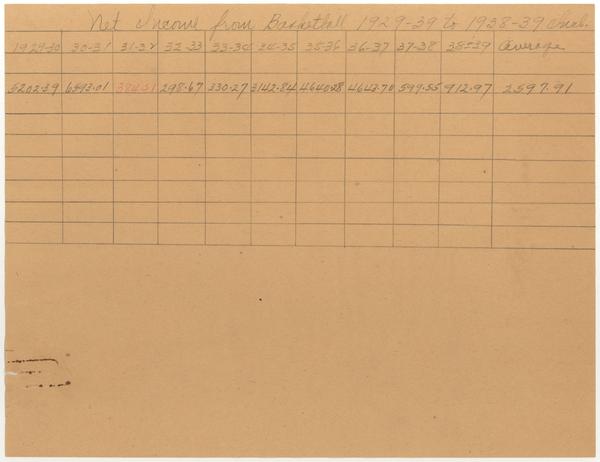 Net Income from Basketball 1929-39 to 1938-39 Incl.
1929-30 30-31 31-32 32-33 33-34 34-35 35-36 36-37 37-38 38-39 Average
5202.39 6593.01 384.51 298.67 330.27 3142.84 4640.28 4643.70 599.55 912.97 2597.91